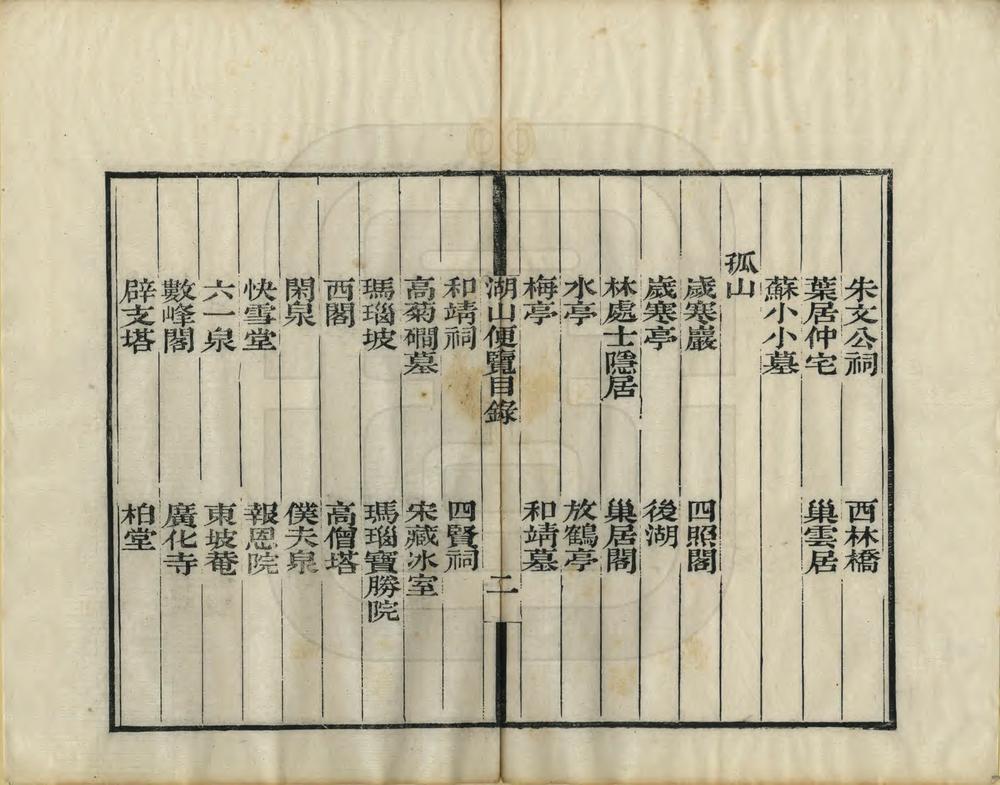 朱文公祠　西林橋
葉居仲宅　巢雲居
蘇小小墓
孤山
歲寒巖　四照閣
歲寒亭　後湖
林處士隱居　巢居閣
水亭　放鶴亭
梅亭　和靖墓
湖山便覽目錄　二
和靖祠　四賢祠
高菊磵墓　宋藏冰室
瑪瑙坡　瑪瑙寶勝院
西閣　高僧塔
閑泉　僕夫泉
快雪堂　報恩院
六一泉　東坡菴
數峰閣　廣化寺
辟支塔　柏堂